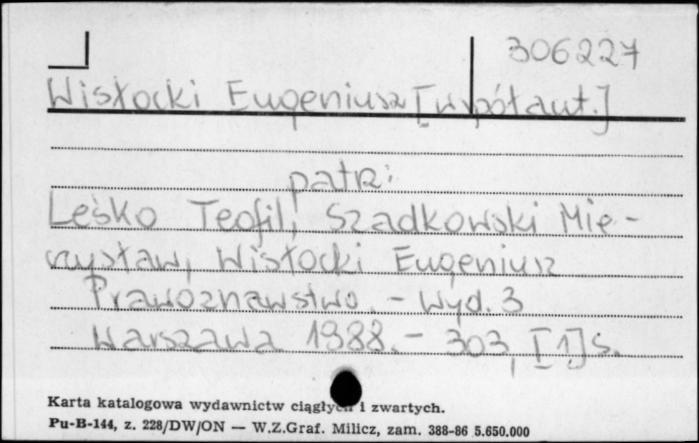 306227
Wisłocki Eugeniusz [współaut.]
patrz:
Leśko Teofil, Szadkowski Mie-
czysław, Wisłocki Eugeniusz
Prawoznawstwo. - Wyd. 3
Warszawa 1988. - 303, [1] s.
Karta katalogowa wydawnictw ciągłych i zwartych.
Pu-B-144, z. 228/DW/ON — W.Z.Graf. Milicz, zam. 388-86 5.650.000